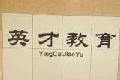 英才教育
YingCaiJiaoYu